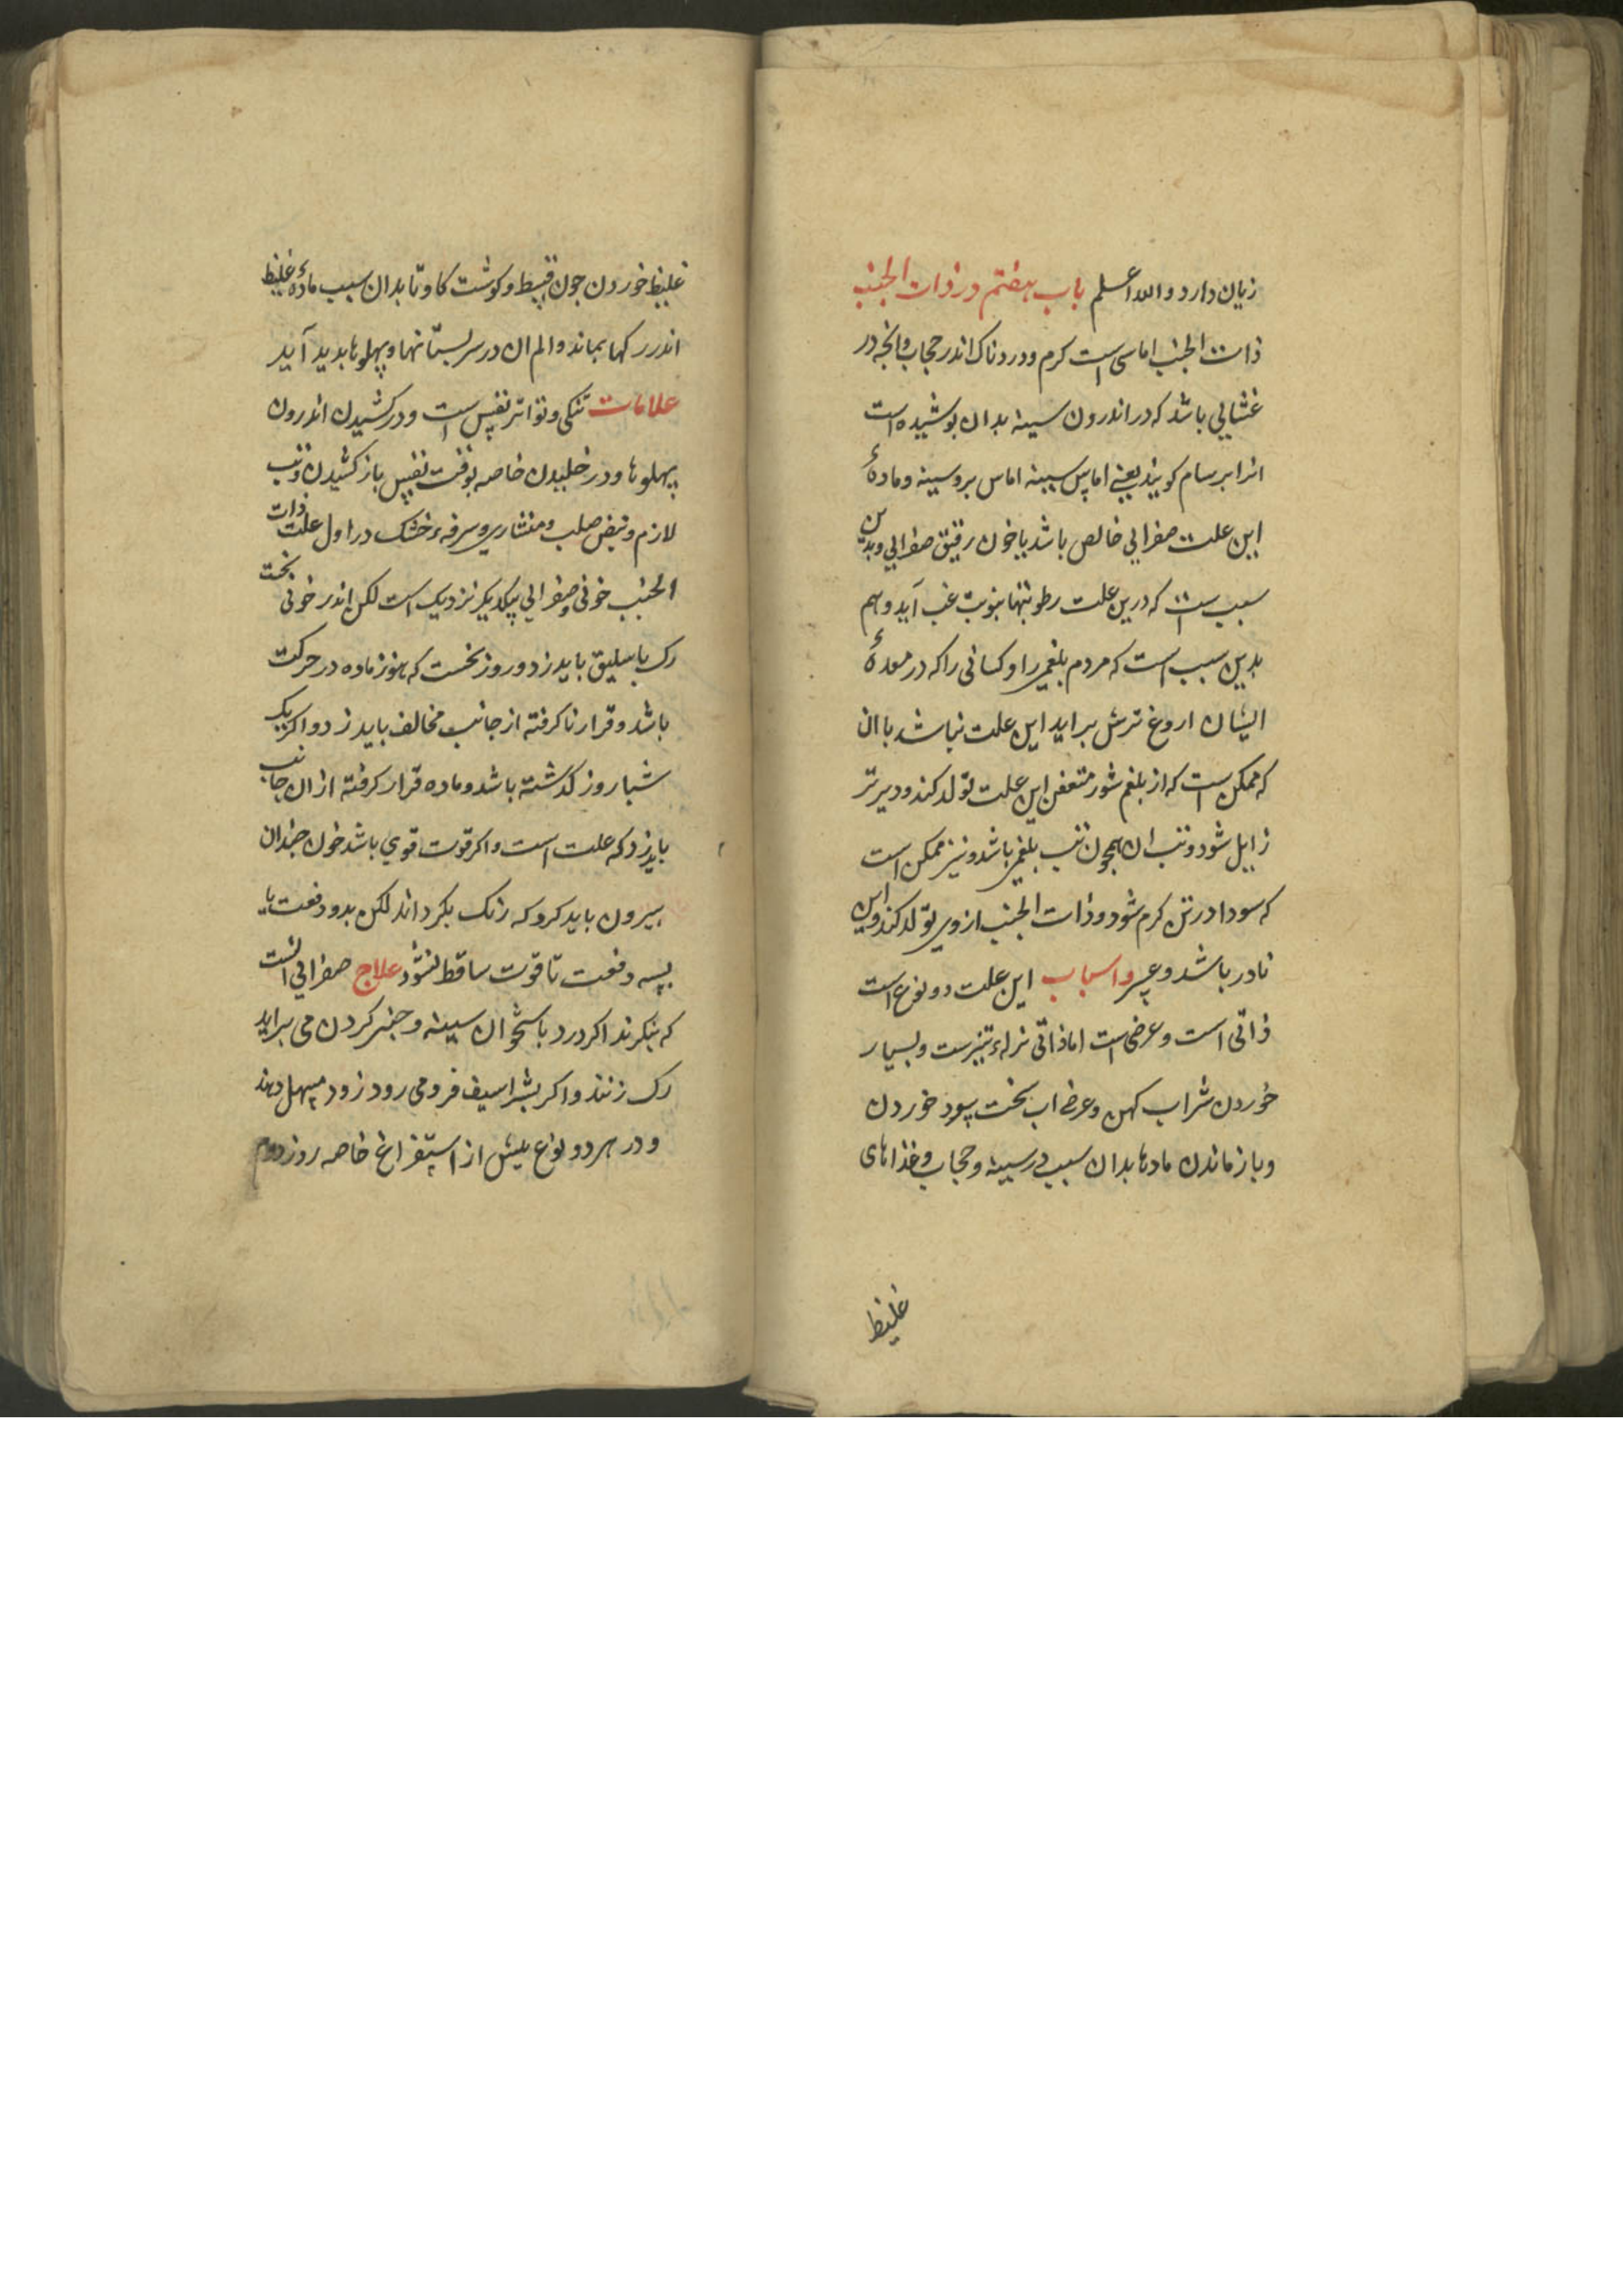 زیان دارد والله اعلم باب هفتم در ذات الجنب
ذات الجنب اماسی است کرم ودردناک اندر حجاب وانجه در
غشایی باشد که در اندرون سینه بدان بوشیده است
انرا برسام کویند یعنی اماس سینه اماس بر وسینه ومادهٔ
این علت صفرایی خالص باشد یا خون رقیق صفرایی وبدین
سبب است که درین علت رطوبتها بنوبت غب آید وهم
بدین سبب است که مردم بلغمی را وکسانی را که در معدهٔ
ایشان اروغ ترش براید این علت نباشد با ان
که ممکن است که از بلغم شور متعفن این علت تولد کند ودیرتر
زایل شود وتب ان همچون تب بلغمی باشد ونیز ممکن است
که سودا در تن کرم شود وذات الجنب از وی تولد کند واین
نادر باشد و واسباب این علت دو نوع است
ذاتی است وعرضی است اما ذاتی نزلهء تیزست وبسیار
خوردن شراب کهن وعرضی اب سخت سرد خوردن
وباز ماندن مادها بدان سبب در سینه وحجاب وغذاهای
غلیظ
غلیظ خوردن جون قنبیط وکوشت کاو تا بدان سبب مادهٔ غلیظ
اندر رکها بماند والم ان در سر بستانها وپهلوها بدید آید
علامات تنکی وتواتر نفس است ودر کشیدن اندرون
پهلوها ودر خلیدن خاصه بوقت نفس باز کشیدن وتب
لازم ونبض صلب ومنشاری وسرفهء خشک در اول علت ذات
الجنب خونی وصفرایی بیکدیکر نزدیک است لکن اندر خونی نخست
رک باسلیق باید زد وروز نخست که هنوز ماده در حرکت
باشد وقرار ناکرفته از جانب مخالف باید زد واکر یک
شباروز کذشته باشد وماده قرار کرفته از ان جانب
باید زد که علت است واکر قوت قوی باشد خون جندان
بیرون باید کرد که رنک بکرداند لکن بدو دفعت یا
بسه دفعت تا قوت ساقط نشود علاج صفرایی انست
که بنکرند اکر درد باستخوان سینه وجنبر کردن می براید
رک زنند واکر بشراسیف فرو می رود زود مسهل دهند
ودر هر دو نوع بیش از استفراغ خاصه روز دوم